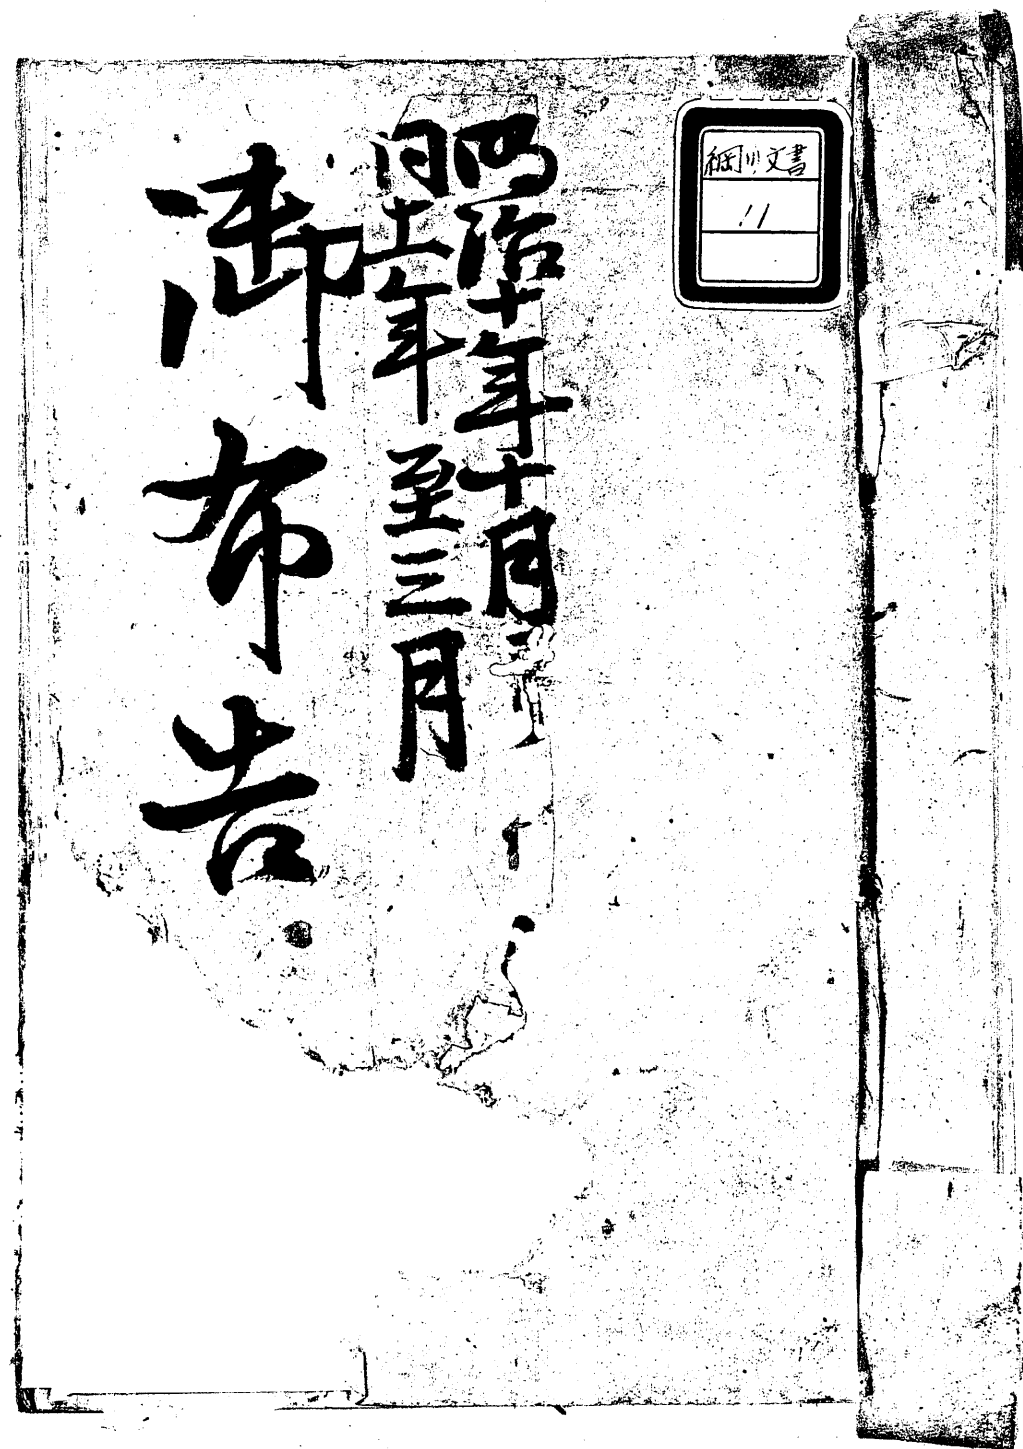 綱川文書
11
明治十年十月
同十一年至三月
御布告